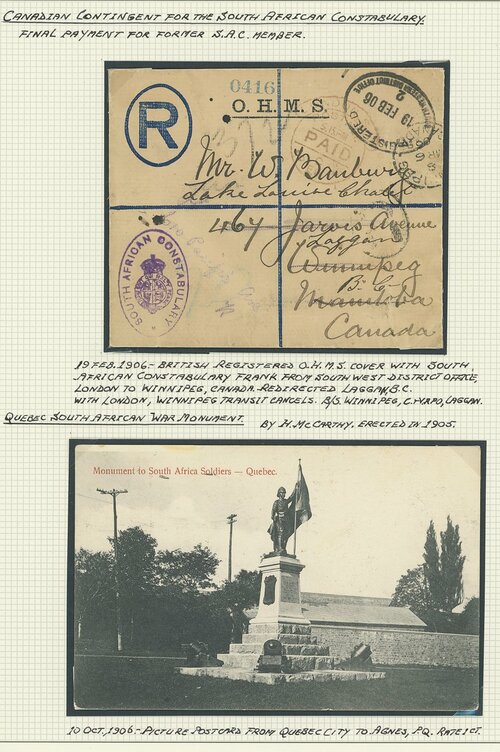 CANADIAN CONTINGENT FOR THE SOUTH AFRICAN CONSTABULARY.
FINAL PAYMENT FOR FORMER S.A.C. MEMBER.
0416
O.H.M.S.
R
REGISTERED
19 FEB 06
2
PAID
Mr. W. Banbury
Lake Louise Chalet
467 Jarvis Avenue
Laggan
Winnipeg
B.C.
Manitoba
Canada
SOUTH AFRICAN CONSTABULARY
19 FEB. 1906.- BRITISH REGISTERED O.H.M.S. COVER WITH SOUTH
AFRICAN CONSTABULARY FRANK FROM SOUTH WEST DISTRICT OFFICE,
LONDON TO WINNIPEG, CANADA REDIRECTED LAGGAN, B.C.
WITH LONDON, WINNIPEG TRANSIT CANCELS. B/S. WINNIPEG, C. PY RPO, LAGGAN.
QUEBEC SOUTH AFRICAN WAR MONUMENT.
BY H. McCARTHY. ERECTED IN 1905.
Monument to South Africa Soldiers — Quebec.
10 OCT, 1906.- PICTURE POSTCARD FROM QUEBEC CITY TO AGNES, P.Q. RATE 1 CT.